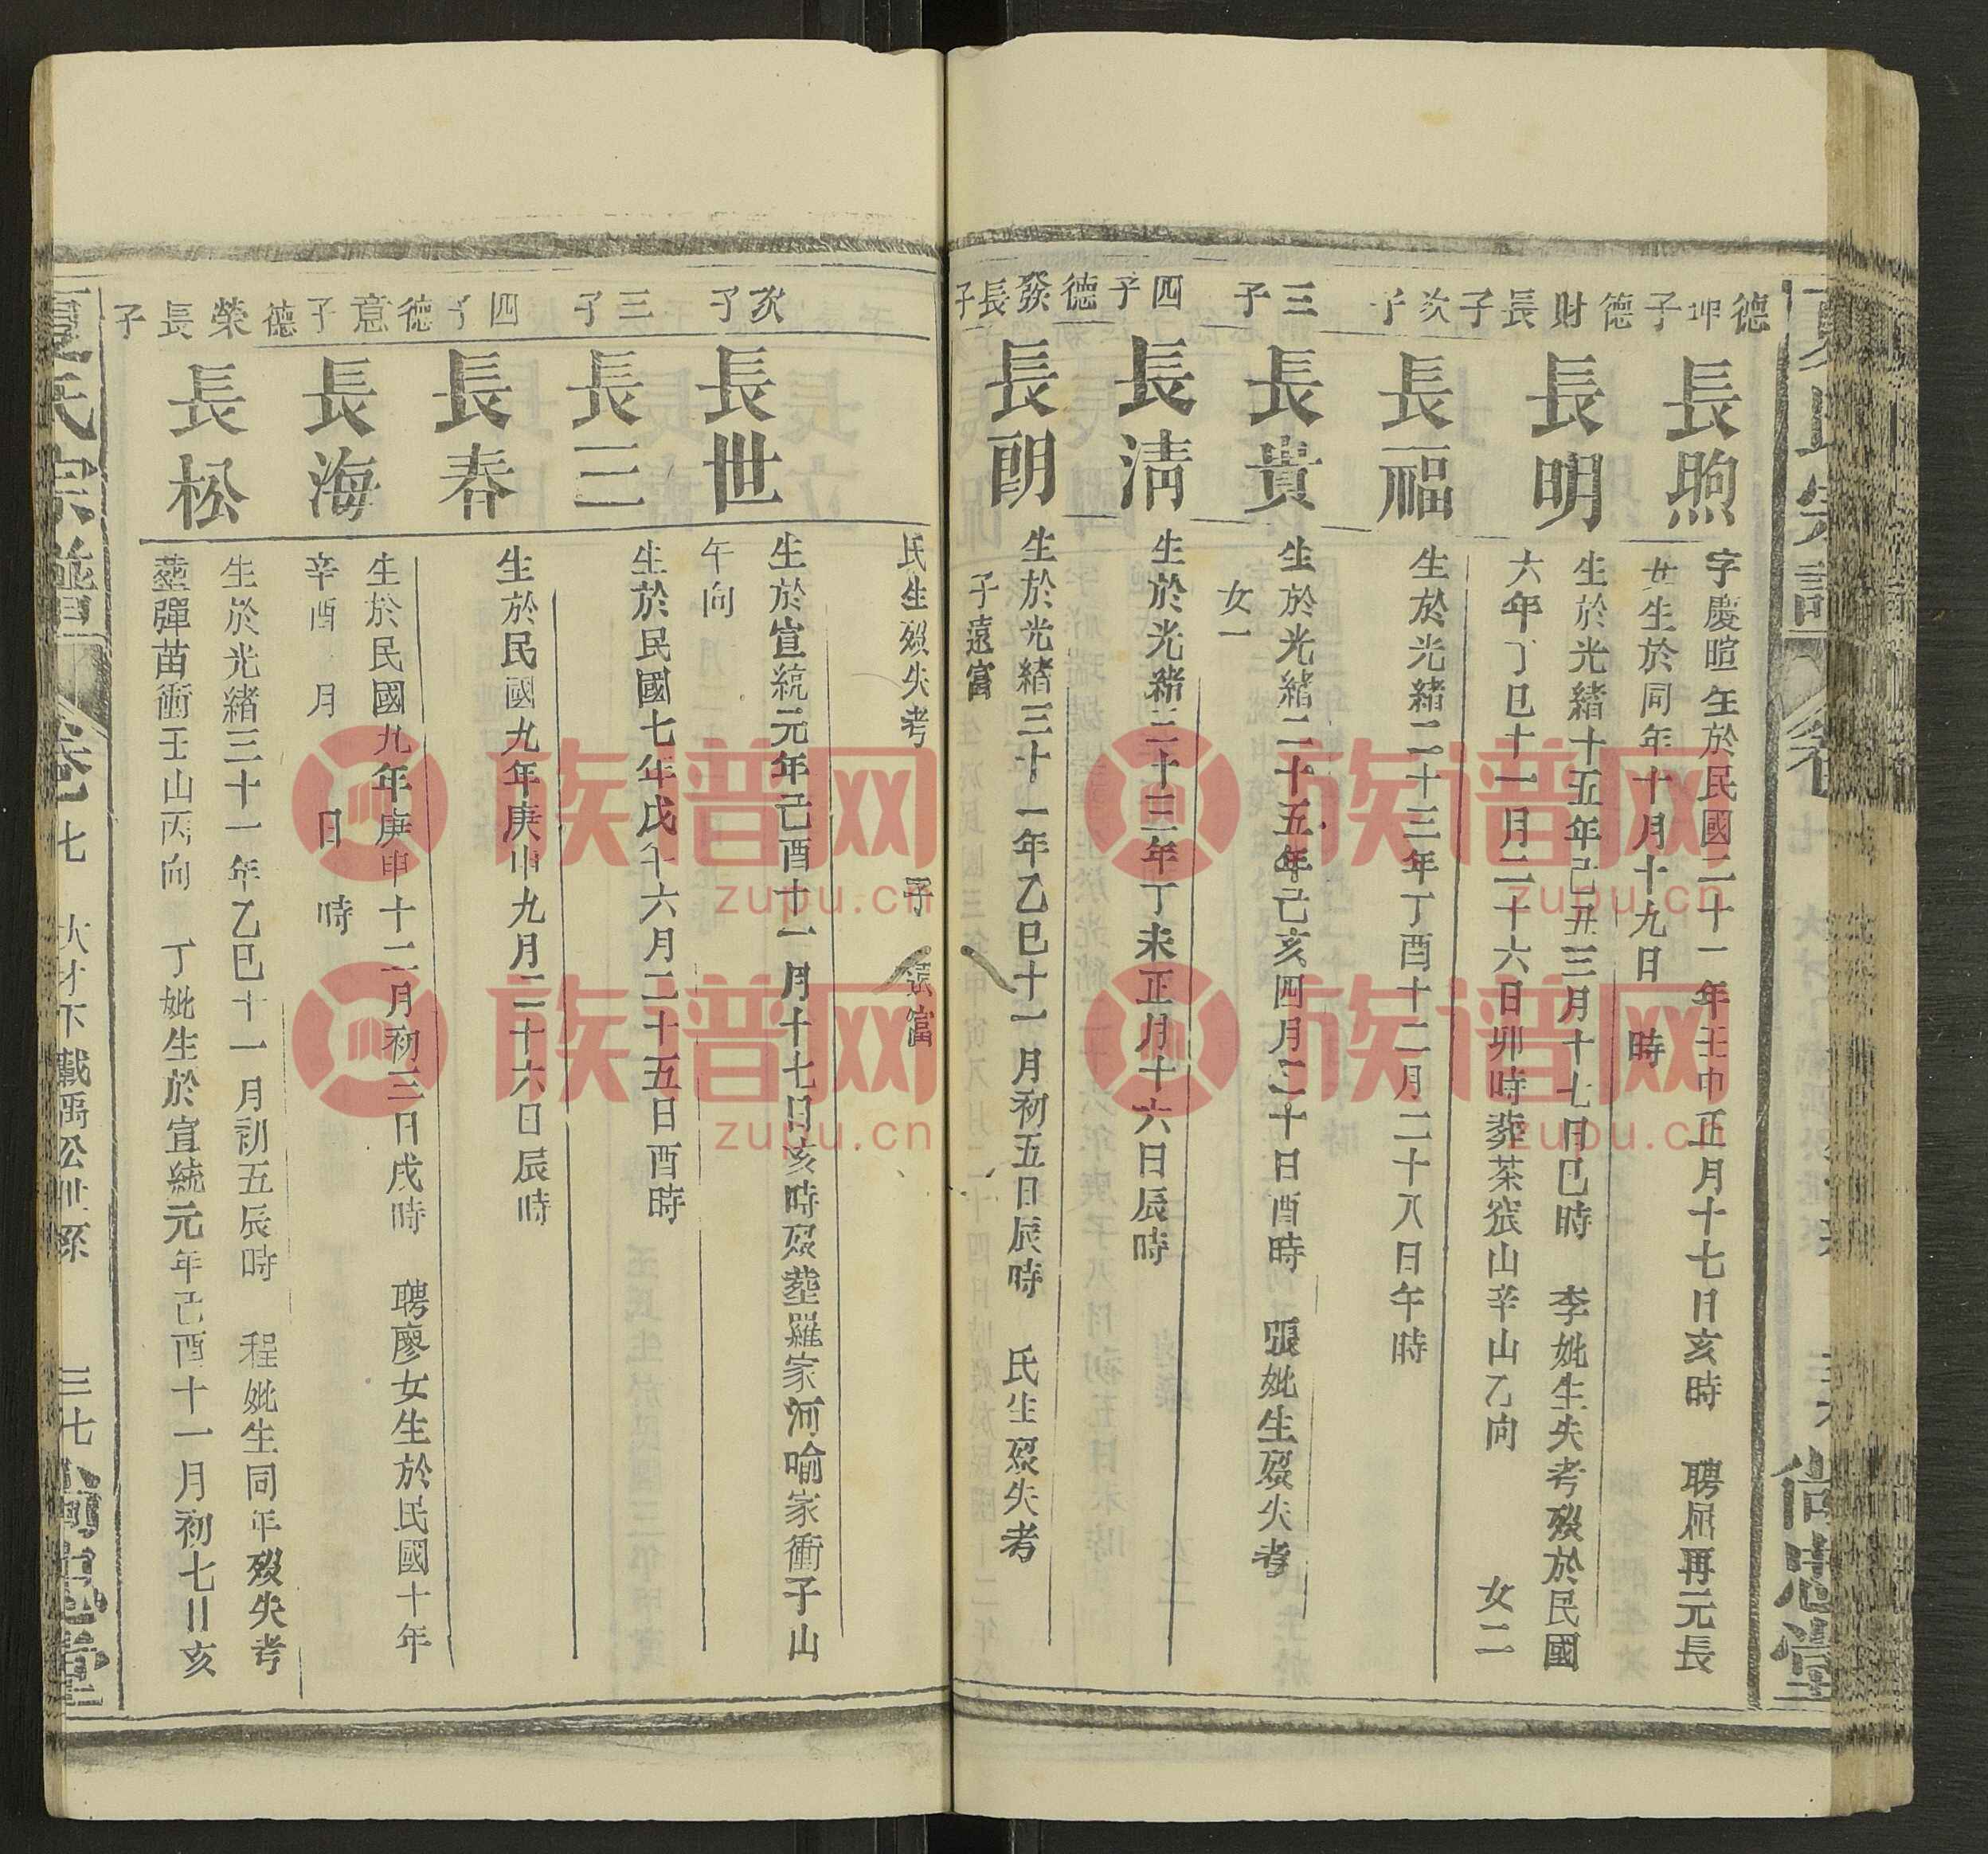 德坤子
長煦
字慶暄生於民國二十一年壬申正月十七日亥時 聘屈再元長
女生於同年十月十九日 時
德財長子
長明
生於光緒十五年己丑三月十七日巳時 李妣生失考歿於民國
六年丁巳十一月二十六日卯時葬茶窊山辛山乙向 女二
次子
長福
生於光緒二十三年丁酉十二月二十八日午時
三子
長貴
生於光緒二十五年己亥四月二十日酉時 張妣生歿失考
女一
四子
長清
生於光緒三十三年丁未正月十六日辰時
德發長子
長朗
生於光緒三十一年乙巳十一月初五日辰時 氏生歿失考
子遠富
氏生歿失考 子 遠富
次子
長世
生於宣統元年己酉十一月十七日亥時歿塟羅家河喻家衝子山
午向
三子
長三
生於民國七年戊午六月二十五日酉時
四子
長春
生於民國九年庚申九月二十六日辰時
德意子
長海
生於民國九年庚申十二月初三日戌時 聘廖女生於民國十年
辛酉 月 日 時
德榮長子
長松
生於光緒三十一年乙巳十一月初五辰時 程妣生同年歿失考
塟彈苗衝壬山丙向 丁妣生於宣統元年己酉十一月初七日亥
夏氏宗譜 卷七 大才下載禹公世系 三七 尚忠堂
族谱网
zupu.cn
族谱网
zupu.cn
族谱网
zupu.cn
族谱网
zupu.cn